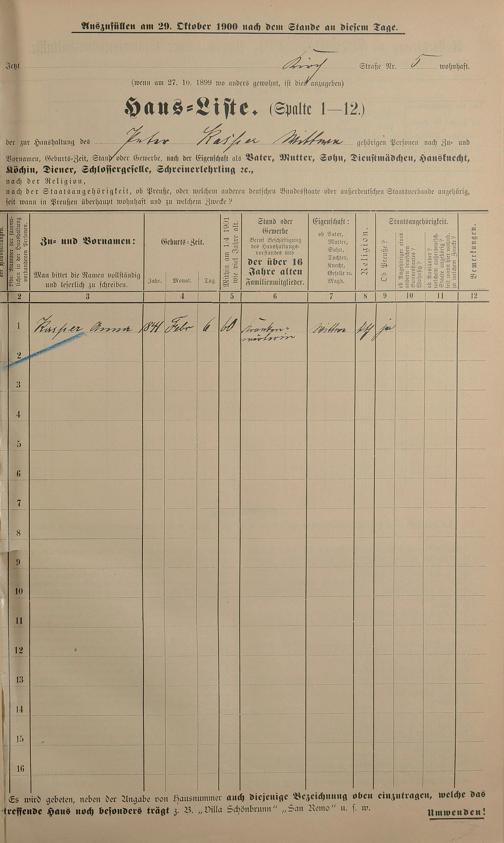 Auszufüllen am 29. Oktober 1900 nach dem Stande an diesem Tage.
Jetzt Kirch Straße Nr. 5 wohnhaft.
(wenn am 27. 10. 1899 wo anders gewohnt, ist dies anzugeben)
Haus-Liste. (Spalte 1—12.)
der zur Haushaltung des Peter Kasper Wittwe gehörigen Personen nach Zu- und
Vornamen, Geburts-Zeit, Stand oder Gewerbe, nach der Eigenschaft als Vater, Mutter, Sohn, Dienstmädchen, Hausknecht,
Köchin, Diener, Schlossergeselle, Schreinerlehrling ꝛc.,
nach der Religion,
nach der Staatsangehörigkeit, ob Preuße, oder welchem anderen deutschen Bundesstaate oder außerdeutschen Staatsverbande angehörig,
seit wann in Preußen überhaupt wohnhaft und zu welchem Zwecke?
Zu- und Vornamen:
Man bittet die Namen vollständig
und leserlich zu schreiben.
Geburts-Zeit.
Jahr. Monat. Tag.
Mithin am 1/4 1901
wie viel Jahre alt.
Stand oder
Gewerbe
der über 16
Jahre alten
Familienmitglieder.
Eigenschaft:
ob Vater,
Mutter,
Sohn,
Tochter,
Knecht,
Geselle u.
Magd.
Religion.
Staatsangehörigkeit.
Ob Preuße?
Bemerkungen.
2 3 4 5 6 7 8 9 10 11 12
1 Kasper Anna 1841 Febr 6 60 Kranken- Wittwe ja
wärterin
2
3
4
5
6
7
8
9
10
11
12
13
14
15
16
Es wird gebeten, neben der Angabe von Hausnummer auch diejenige Bezeichnung oben einzutragen, welche das
treffende Haus noch besonders trägt z. B. „Villa Schönbrunn" „San Remo" u. s. w.
Umwenden!